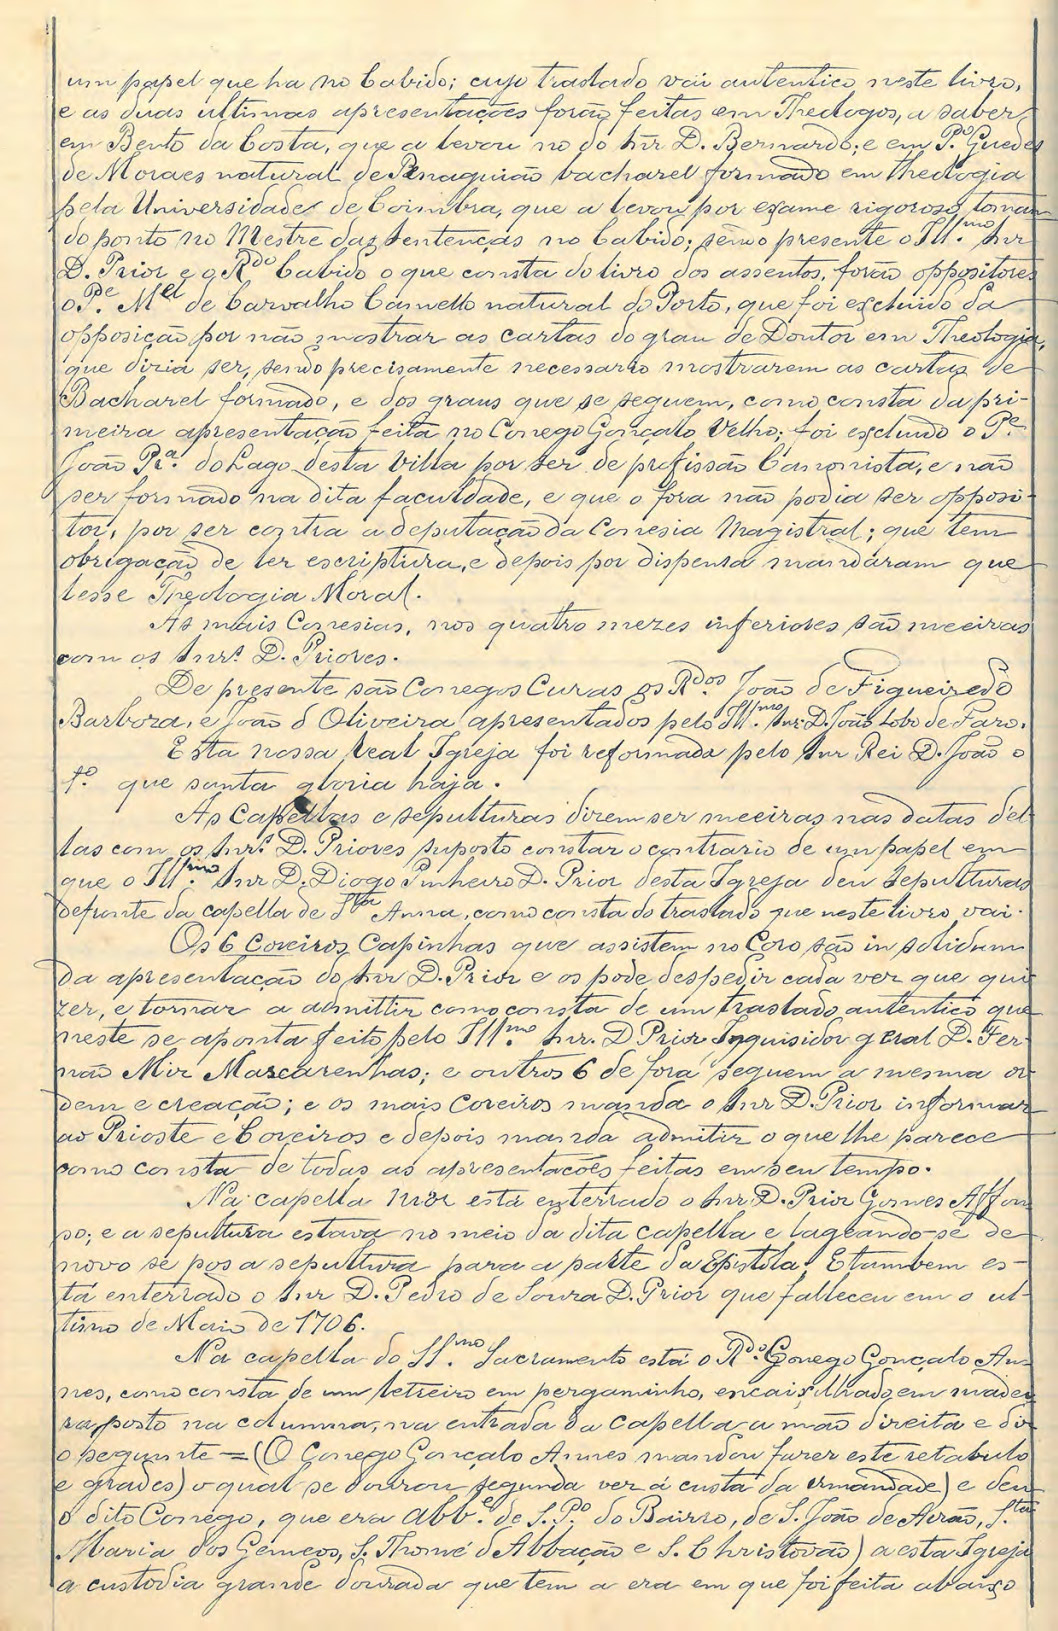 um papel que ha no Cabido; cujo traslado vai autentico neste livro,
e as duas ultimas apresentações forão feitas em Theologos, a saber,
em Bento da Costa, que a levou no do Snr D. Bernardo; e em P.º Guedes
de Moraes natural de Penaguião bacharel formado em theologia
pela Universidade de Coimbra, que a levou por exame rigoroso, toman-
do ponto no Mestre das Sentenças no Cabido; sendo presente o Ill.mo Snr
D. Prior e o R.do Cabido o que consta do livro dos assentos, forão oppositores
o P.e M.el de Carvalho Camello natural do Porto, que foi excluido da
opposição por não mostrar as cartas do grau de Doutor em Theologia,
que dizia ser, sendo precisamente necessario mostrarem as cartas de
Bacharel formado, e dos graus que se seguem, como consta da pri-
meira apresentação feita no Conego Gonçalo Velho; foi excluido o P.e
João Pr.ª do Lago desta Villa por ser de profissão Canonista, e não
ser formado na dita faculdade, e que o fora não podia ser opposi-
tor, por ser contra a deputação da Conesia Magistral; que tem
obrigação de ler escriptura, e depois por dispensa mandáram que
lesse Theologia Moral.
As mais Conesias, nos quatro mezes inferiores são meeiras
com os Snr.s D. Priores.
De presente são Conegos Curas os R.dos João de Figueiredo
Barboza, e João d Oliveira apresentados pelo Ill.mo Snr. D. João Lobo de Faro.
Esta nossa real Igreja foi reformada pelo Snr Rei D. João o
1.º que santa gloria haja.
As Capellas e sepulturas dizem ser meeiras nas datas del-
las com os Snr.s D. Priores suposto constar o contrario de um papel em
que o Ill.mo Snr D. Diogo Pinheiro D. Prior desta Igreja deu sepulturas
defronte da capella de S.ta Anna, como consta do traslado que neste livro vai.
Os 6 Coreiros Capinhas que assistem no Coro são in solidum
da apresentação do Snr D. Prior e os pode despedir cada vez que qui
zer, e tornar a admittir como consta de um traslado autentico que
neste se aponta feito pelo Ill.mo Snr. D Prior Inquisidor geral D. Fer-
não Miz Mascarenhas; e outros 6 de fora seguem a mesma or
dem e creação; e os mais Coreiros manda o Snr D. Prior informar
ao Prioste e Coreiros e depois manda admitir o que lhe parece
como consta de todas as apresentacões feitas em seu tempo.
Na capella mór está enterrado o Snr D. Prior Gomes Affon
so; e a sepultura estava no meio da dita capella e lageando-se de
novo se pos a sepultura para a parte da Epistola. E tambem es-
tá enterrado o Snr D. Pedro de Souza D. Prior que falleceu em o ul-
timo de Maio de 1706.
Na capella do SS.mo Sacramento está o R.do Conego Gonçalo An-
nes, como consta de um letreiro em pergaminho, encaixilhado em madei
ra, posto na columna, na entrada da capella a mão direita e diz
o seguinte = (O Conego Gonçalo Annes mandou fazer este retabulo
e grades) o qual se dourou segunda vez á custa da irmandade) e deu
o dito Conego, que era Abb.e de S. P.º do Bairro, de S. João de Airão, S.ta
Maria dos Gemeos, S. Thomé d Abbação e S. Christovão) a esta Igreja
a custodia grande dourada que tem a era em que foi feita abaixo